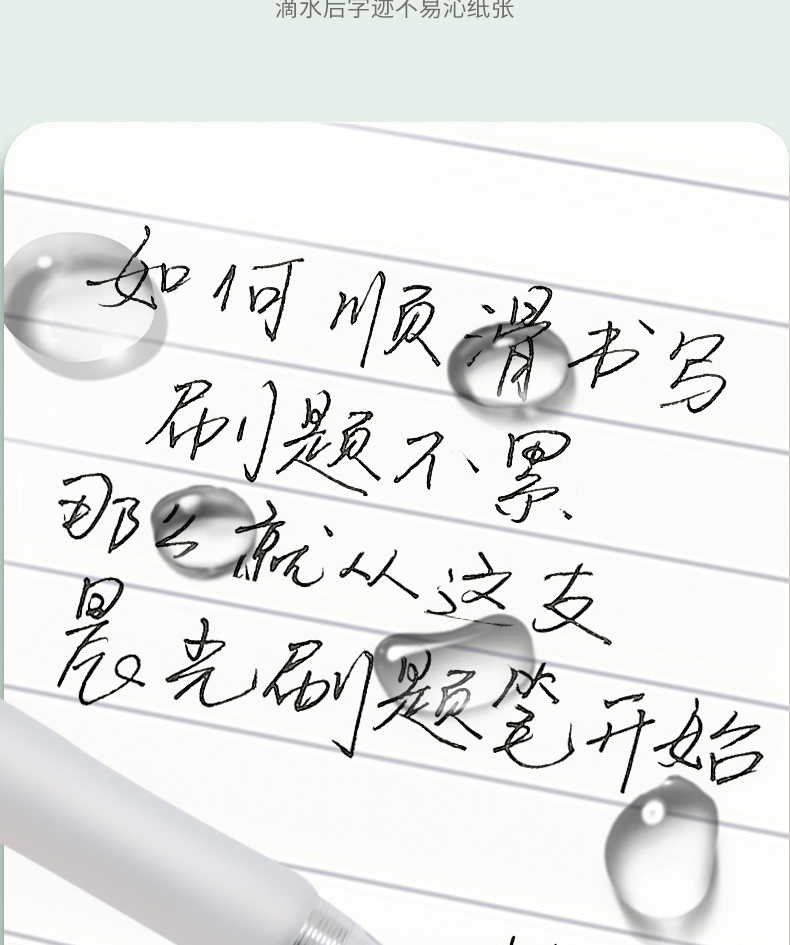 滴水后字迹不易沁纸张
如何顺滑书写
刷题不累
那么就从这支
晨光刷题笔开始